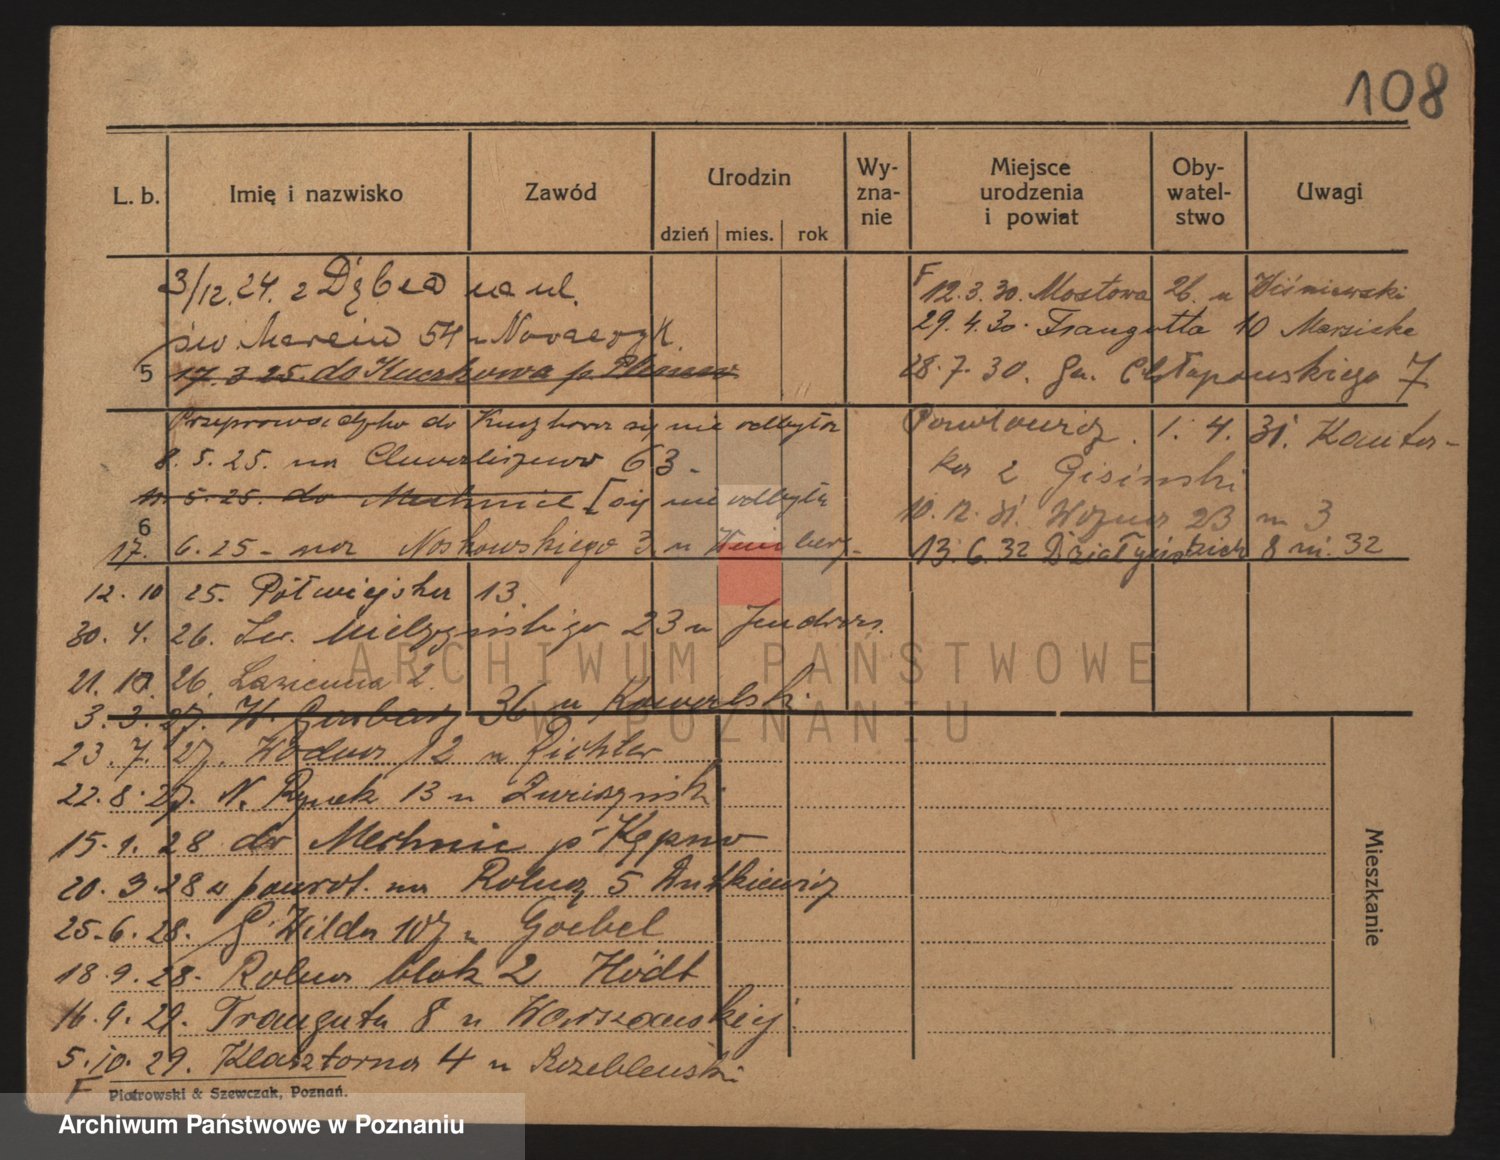 108
L. b.
Imię i nazwisko
Zawód
Urodzin
dzień mies. rok
Wy-
zna-
nie
Miejsce
urodzenia
i powiat
Oby-
watel-
stwo
Uwagi
3/12.24. z Dębca na ul.
św Marcin 54 u Nowaczyk.
5 17.3.25. do Kuczkowa p. Pleszew
Przeprowadzka do Kuczkowa się nie odbyła
8. 5. 25. na Chwaliszewo 63.
5. 25. do Mechnice [się nie odbyła
6
17. 6. 25 - na Noskowskiego 3 u
12. 10 25. Półwiejska 13.
30. 4. 26. Sew. Mielżyńskiego 23 u
21. 10. 26. Łazienna 2.
3. 3. 27. W. Garbary 36 u Kowalski
23. 7. 27. Wodna 12 u Richter
22. 8. 27. N. Rynek 13 u
15. 1. 28 do Mechnic p Kępno
20. 3. 28 z powrot. na Rolna 5 Dutkiewicz
25. 6. 28. G. Wilda 107 u Goebel
18. 9. 28. Rolna blok 2 Hödt
16. 9. 29. Trauguta 8 u Warszawskiej
5. 10. 29. Klasztorna 4 u
F
F
12. 3. 30. Mostowa 26. u Wiśniewski
29. 4. 30. Traugutta 10
28. 7. 30. Gen. Chłapowskiego 7
Pawłowicz. 1. 4. 31. Kantar-
ka 2 Gisinski
10. 12. 31. Wozna 23 m 3
13. 6. 32 Działyńskich 8 m. 32
Mieszkanie
Piotrowski & Szewczak, Poznań.
ARCHIWUM PAŃSTWOWE
W POZNANIU
Archiwum Państwowe w Poznaniu